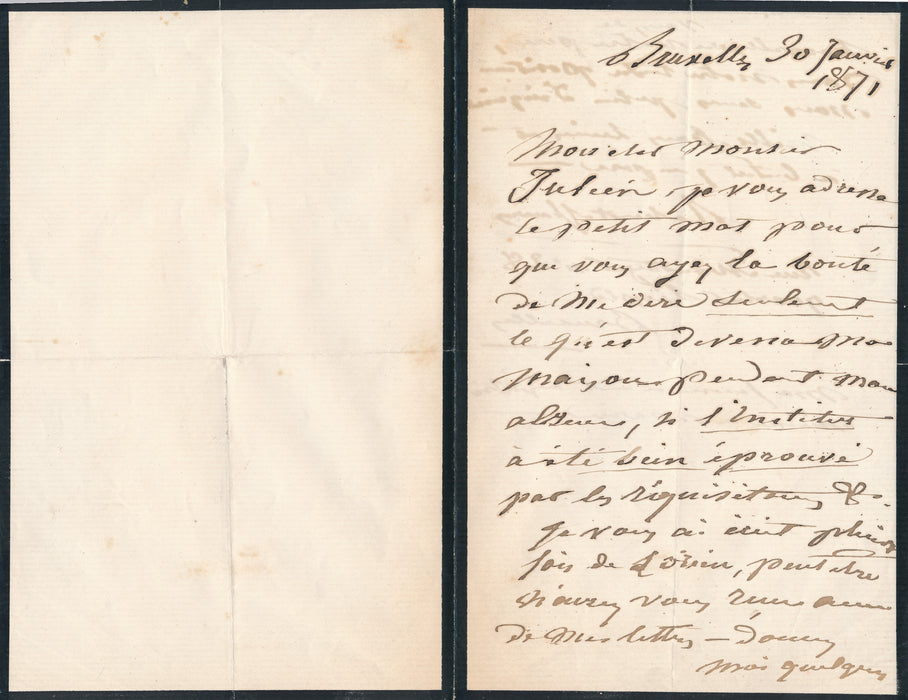 Bruxelles 30 Janvier
1871
Mon cher Monsieur
Julien, je vous adresse
ce petit mot pour
que vous ayez la bonté
de me dire seulement
ce qu'est devenu ma
maison pendant mon
absence, si l'Institut
a été bien éprouvé
par les réquisitions &c.
Je vous ai écrit plusieurs
fois de, peut être
n'avez vous reçu aucune
de mes lettres — donnez
moi quelques